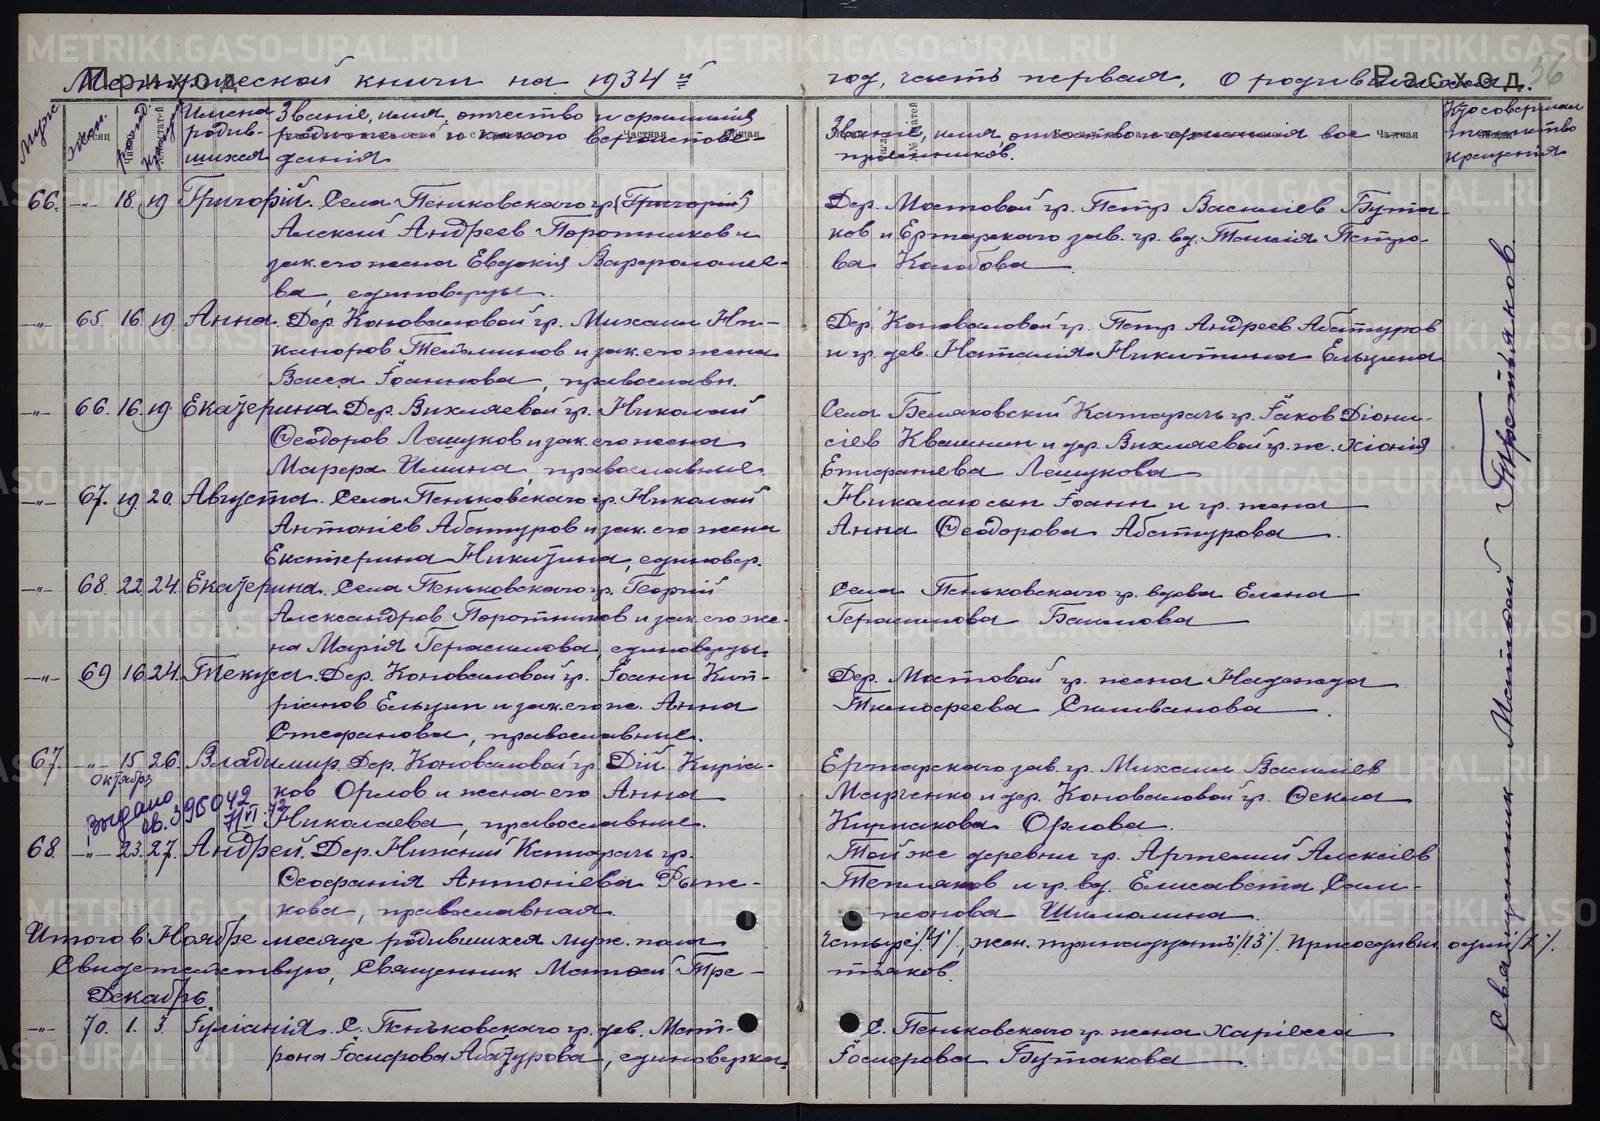 METRIKI.GASO-URAL.RU
Приход
Расход.
Метрической книги на 1934й год, часть первая, О родившихся.
56
Имена родив-шихся
Званіе, имя, отчество и фамилія родителей и какого вероисповедания
Званіе, имя, отчество и фамилія воспріемников.
Кто совершал таинство крещенія
66. -"- 18. 19 Григорій. Села Пеньковскаго гр. (Григорій)
Алексей Андреев Поротников и
зак. его жена Евдокія Варфоломее-
ва, единоверцы.
Дер. Мостовой гр. Петр Василіев Бута-
ков и Ертарскаго зав. гр. вд. Таисія Петро-
ва Колобова
-"- 65. 16. 19 Анна. Дер. Коноваловой гр. Михаил Ни-
каноров Тельминов и зак. его жена
Васса Іоаннова, православн.
Дер. Коноваловой гр. Петр Андреев Абатуров
и гр. дев. Наталія Никитина Ельцина
-"- 66. 16. 19. Екатерина. Дер. Вихляевой гр. Николай
Ѳеодоров Лещуков и зак. его жена
Марфа Ильина, православные.
Села Беляковский Катарач гр. Іаков Діони-
сіев Квашнин и дер. Вихляевой гр. ж. Хіонія
Епифанова Лещукова
-"- 67. 19. 20. Августа. Села Пеньковскаго гр. Николай
Антоніев Абатуров и зак. его жена
Екатерина Никитина, единовер.
Николаю сын Іоанн и гр. жена
Анна Ѳеодорова Абатурова.
-"- 68. 22. 24. Екатерина. Села Пеньковскаго гр. Георгій
Александров Поротников и зак. его же-
на Марія Герасимова, единоверцы.
Села Пеньковскаго гр. вдова Елена
Герасимова Баимова
-"- 69 16. 24. Текуса. Дер. Коноваловой гр. Іоанн Кип-
ріанов Ельцин и зак. его ж. Анна
Стефанова, православные.
Дер. Мостовой гр. жена Надежда
Тимофеева Силиванова.
67. -"- 15. 26. Владимир. Дер. Коноваловой гр. Дій Киріа-
Октября
ков Орлов и жена его Анна
Николаева, православные.
выдано св. 395042
7/VI 72
Ертарскаго зав. гр. Михаил Василіев
Марченко и дер. Коноваловой гр. Ѳекла
Кириакова Орлова.
68. -"- 23. 27. Андрей. Дер. Нижний Катарач гр.
Ѳеофанія Антоніева Рыж-
кова, православная.
Той же деревни гр. Артемий Алексіев
Тепляков и гр. вд. Елисавета Сам-
сонова Шимолина.
Итого в Ноябре месяце родившихся муж. пола четыре /4/, жен. тринадцать /13/. Присоедин. один /1/.
Свидетельствую, Священник Матфей Тре-
тьяков.
Декабрь.
-"- 70. 1. 3. Іуліанія. С. Пеньковскаго гр. дев. Мат-
рона Іосифова Абатурова, единоверка.
С. Пеньковскаго гр. жена Харіесса
Іосифова Бутакова.
Священник Матфей Третьяков.